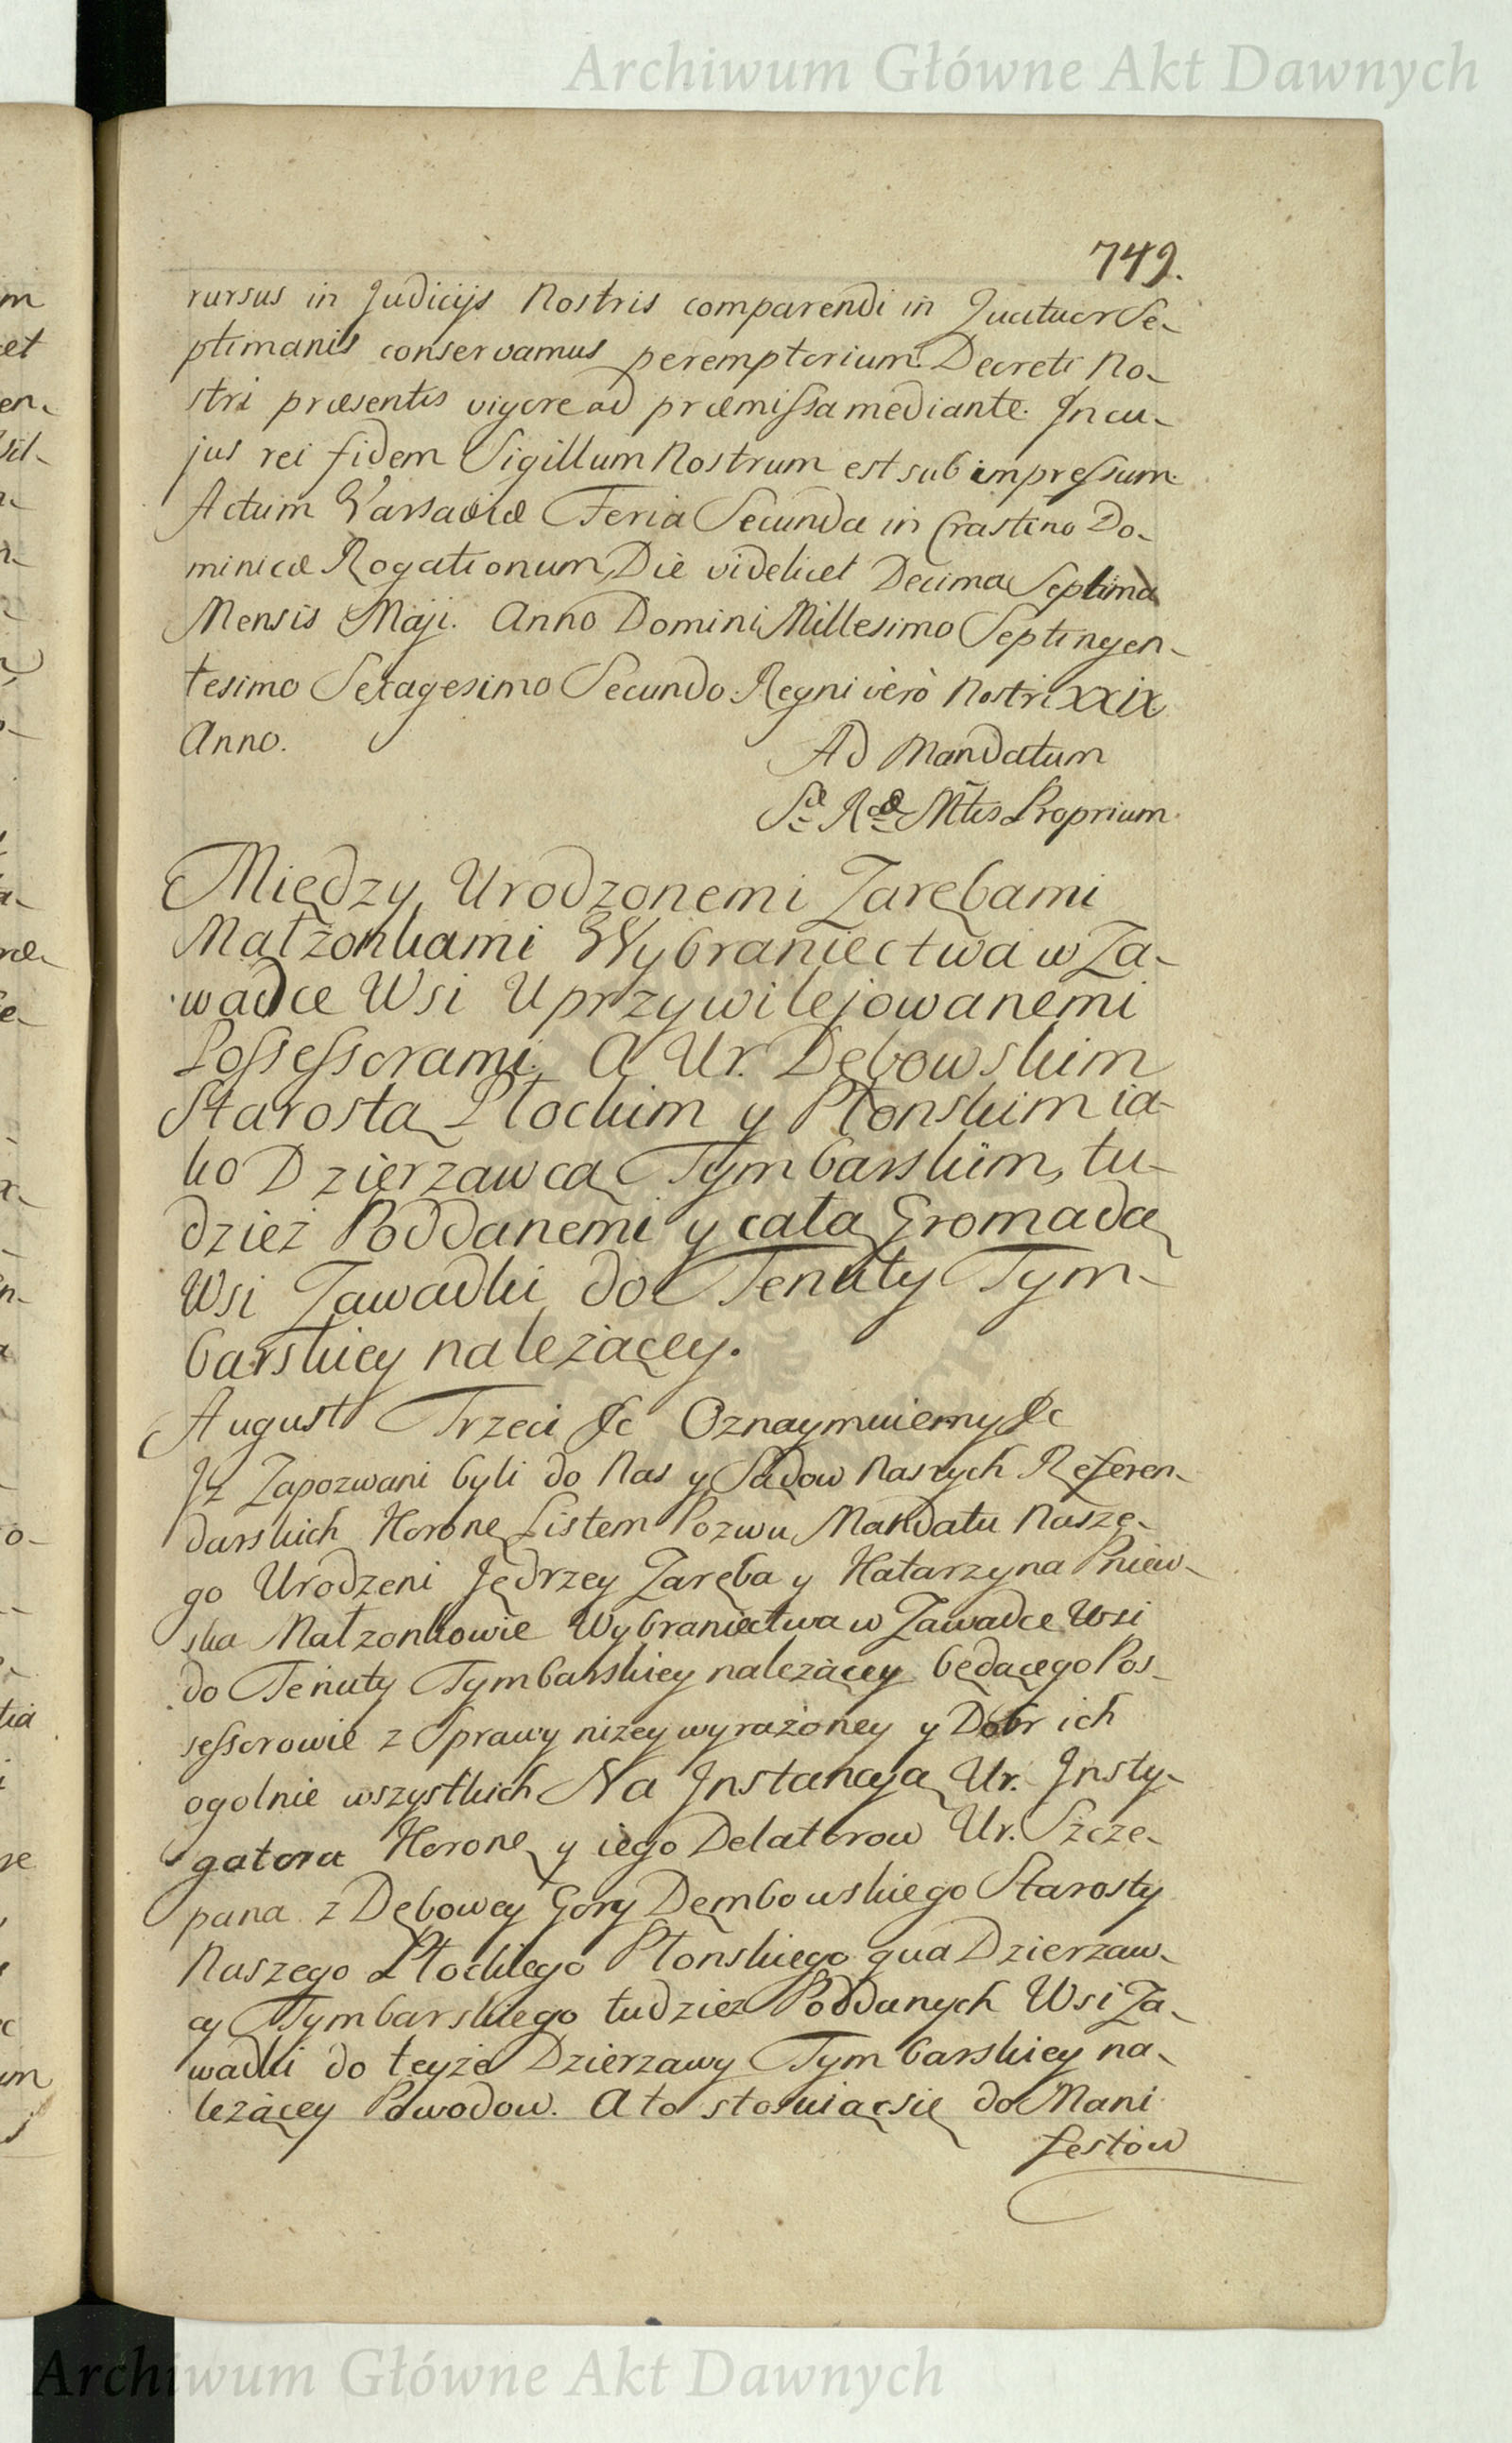 Archiwum Główne Akt Dawnych
749.
rursus in Judicijs Nostris comparendi in Quatuor Se-
ptimanis conservamus peremptorium. Decreti No-
stri præsentis vigore ad præmissa mediante. In cu-
jus rei fidem Sigillum Nostrum est sub impressum.
Actum Varsaviæ Feria Secunda in Crastino Do-
minicæ Rogationum, Die videlicet Decima Septima
Mensis Maji. Anno Domini Millesimo Septingen-
tesimo Sexagesimo Secundo. Regni vero Nostri XXIX
Anno.
Ad Mandatum
Sæ Ræ Mtis Proprium.
Między Urodzonemi Zarębami
Małżonkami Wybraniectwa w Za-
wadce Wsi Uprzywilejowanemi
Possessorami, A Ur. Dębowskim
Starostą Płockim y Płonskim ia-
ko Dzierzawcą Tymbarskim, tu-
dzież Poddanemi y całą Gromadą
Wsi Zawadki do Tenuty Tym-
barskiey należącey.
August Trzeci &c Oznaymuiemy &c
Iż Zapozwani byli do Nas y Sądow Naszych Referen-
darskich Koronę Listem Pozwu Mandatu Nasze-
go Urodzeni Jędrzey Zaręba y Katarzyna Pniew-
ska Małzonkowie Wybraniectwa w Zawadce Wsi
do Tenuty Tymbarskiey należącey będącego Pos-
sessorowie z Sprawy nizey wyrażoney y Dobr ich
ogolnie wszystkich Na Instancyą Ur. Insty-
gatora Koronę y iego Delatorow Ur. Szcze-
pana z Dębowey Gory Dembowskiego Starosty
Naszego Płockiego Płonskiego qua Dzierzaw-
cy Tymbarskiego tudziez Poddanych Wsi Za-
wadki do teyże Dzierzawy Tymbarskiey na-
leżącey Powodow. A to stosuiąc się do Mani
festow
Archiwum Główne Akt Dawnych